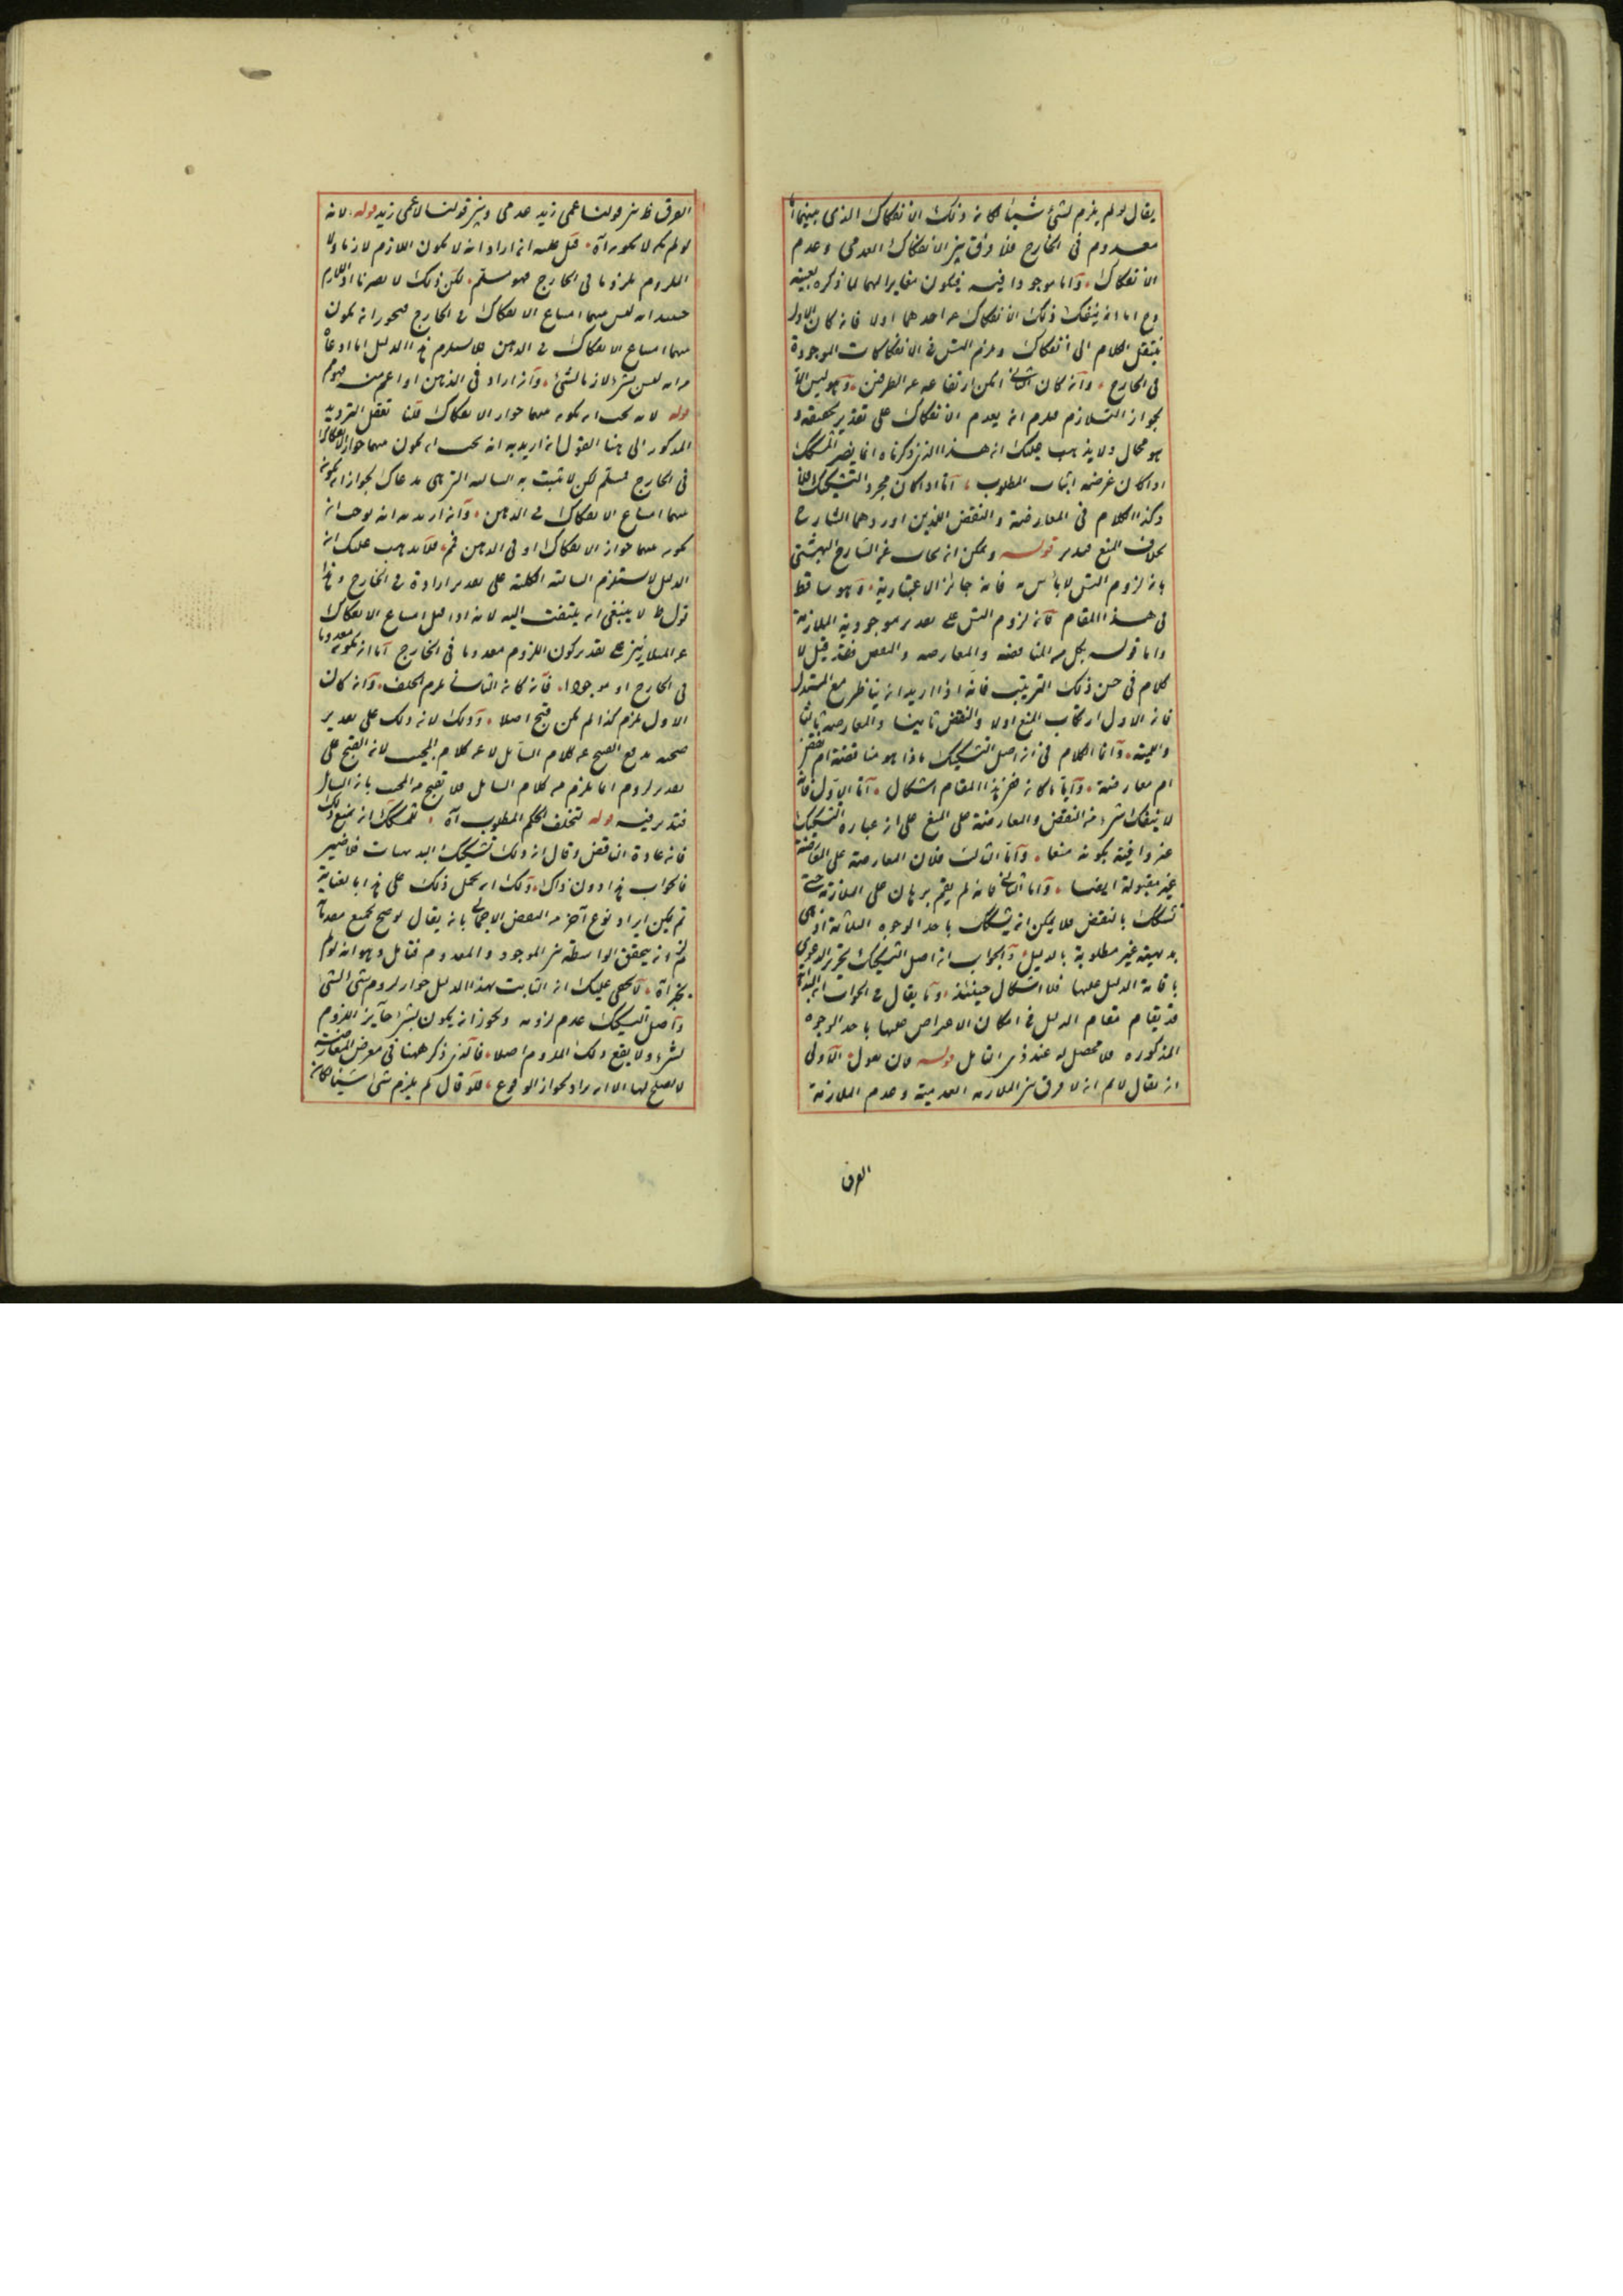 يقال لو لم يلزم لشئ شيئا لكان ذلك الانفكاك الذى بينهما اما
معدوم فى الخارج فلا فرق بين الانفكاك العدمى وعدم
الانفكاك واما موجودا فيه فيكون مغايرا لهما لما ذكره بعينه
وح اما ان ينفك ذلك الانفكاك عن احدهما اولا فان كان الاول
ينتقل الكلام الى انفكاك ويلزم التس فى الانفكاكات الموجودة
فى الخارج وان كان الثانى امكن ارتفاعه عن الطرفين وهو ليس الا
بجواز التلازم فلزم ان يعدم الانفكاك على تقدير تحققه و
هو محال ولا يذهب عليك ان هذا الذى ذكرناه انما يضر المشكك
اذا كان غرضه اثبات المطلوب اما اذا كان مجرد التشكيك فلا
وكذا الكلام فى المعارضة والنقض اللذين اوردهما الشارح
بخلاف المنع فتدبر قوله ويمكن ان يجاب عن الشارح البهشتى
بان لزوم التس لا بأس به فانه جائز الاعتبارية وهو ساقط
فى هذا المقام لان لزوم التس على تقدير موجودية الملازمة
واما قوله بكل من المناقضه والمعارضه والنقض فقد قيل لا
كلام فى حسن ذلك الترتيب فانه اذا اريد ان يناظر مع المستدل
فان الاول ارتكاب المنع اولا والنقض ثانيا والمعارضه ثالثا
وانما الكلام فى ان اصل التشكيك ماذا هو مناقضة ام نقض
ام معارضة وايا ما كان ففى هذا المقام اشكال اما الاول فانه
لا ينفك شئ من النقض والمعارضة على المنع على ان عبارة التشكيك
غير وافية بكونه منعا واما الثالث فلان المعارضة على المعارضة
غير مقبولة ايضا واما الثانى فانه لم يقم برهان على الملازمة حتى
تشكك بالنقض فلا يمكن ان يشكك باحد الوجوه الثلاثة اذ هى
بديهية غير مطلوبة بالدليل والجواب ان اصل التشكيك تحرير الدعوى
باقامة الدليل عليها فلا اشكال حينئذ وما يقال فى الجواب ان البداهة
قد يقام مقام الدليل فى امكان الاعتراض عليها باحد الوجوه
المذكورة فلا محصل له عند ذى التأمل قوله فان نقول الاولى
ان يقال لا نم انه لا فرق بين الملازمة العدمية وعدم الملازمة
الفرق
الفرق ظ بين قولنا عمى زيد عدمى وبين قولنا لا عمى زيد قوله لانه
لو لم يكن لا يكون آه قيل عليه ان اراد انه لا يكون اللازم لازما ولا
الملزوم ملزوما فى الخارج فهو مسلم لكن ذلك لا يضرنا اذ اللازم
حينئذ انه ليس بينهما امتناع الانفكاك فى الخارج فيجوز ان يكون
بينهما امتناع الانفكاك فى الذهن فلا يستلزم هذا الدليل ما ادعاه
من انه ليس شئ لازما لشئ وان اراد فى الذهن او اعم منه فهو مم
قوله لانه يجب ان يكون بينهما جواز الانفكاك قلنا نقل الترديد
المذكور الى هنا القول ان اريد به انه يجب ان يكون بينهما جواز الانفكاك
فى الخارج فمسلم لكن لا يثبت به السالبة التى هى مدعاك لجواز ان يكون
بينهما امتناع الانفكاك فى الذهن وان اريد به انه يجب ان
يكون بينهما جواز الانفكاك او فى الذهن فمم فلا يذهب عليك ان
الدليل لا يستلزم السالبة الكلية على تقدير ارادة فى الخارج وهذا
قول ط لا ينبغى ان يلتفت اليه لانه اذا قيل امتناع الانفكاك
عن المتلازمين على تقدير كون اللزوم معدوما فى الخارج اما ان يكون معدوما
فى الخارج او موجودا فان كان الثانى لزم الخلف وان كان
الاول يلزم كذا لم يكن قبح اصلا وذلك لان ذلك على تقدير
صحته يدفع القبح عن كلام السائل لا عن كلام المجيب لان القبح على
تقدير لزوم انما يلزم من كلام السائل فلا قبح من المجيب بان السائل
فتدبر فيه قوله لتخلف الحكم المطلوب آه تمسكك ان يمنع ذلك
فانه عادة الناقض وقال ان ذلك تشكيك البديهيات فلا ضير
فالجواب هذا دون ذاك ولك ان يحمل ذلك على هذا بالعناية
ثم يمكن ايراد نوع آخر من النقض الاجمالى بان يقال لو صح جميع مقدماته
لزم ان يتحقق الواسطة بين الموجود والمعدوم فتأمل وهو انه لو لم
يجز آه لا يخفى عليك ان الثابت بهذا الدليل جواز لزوم شئ لشئ
واصل التشكيك عدم لزومه ويجوز ان يكون شئ جائز اللزوم
لشئ ولا يقع ذلك اللزوم اصلا فالذى ذكر ههنا فى معرض المعارضة
لا يصلح لها الا ان يراد بجواز الوقوع فلو قال لم يلزم شئ شيئا لكان